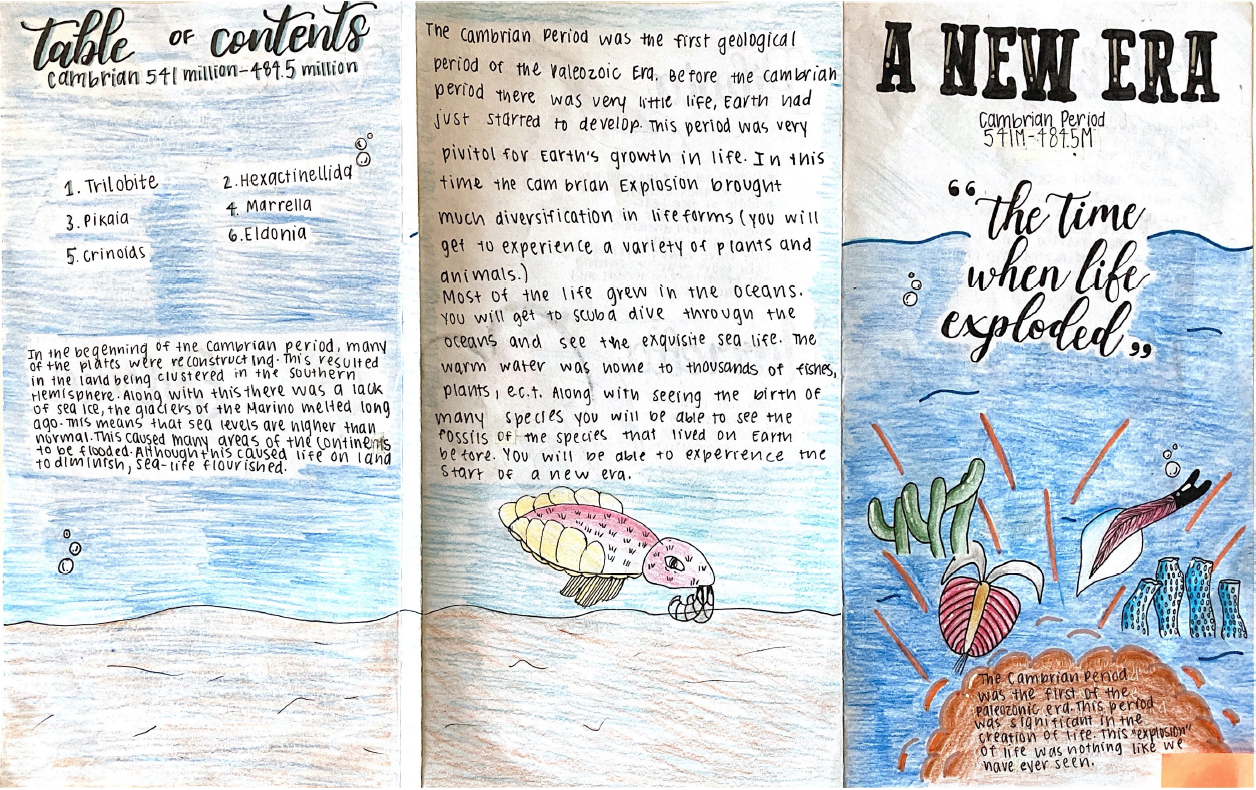 table OF contents
Cambrian 541 million-484.5 million
1. Trilobite
2. Hexactinellida
3. Pikaia
4. Marrella
5. Crinoids
6. Eldonia
In the begenning of the Cambrian period, many
of the plates were reconstructing. This resulted
in the land being clustered in the Southern
Hemisphere. Along with this there was a lack
of sea ice, the glaciers of the Marino melted long
ago. This means that sea levels are higher than
normal. This caused many areas of the continents
to be flooded. Although this caused life on land
to diminish, sea-life flourished.
The Cambrian Period was the first geological
period of the Paleozoic Era. Before the Cambrian
period there was very little life, Earth had
just started to develop. This period was very
pivitol for Earth's growth in life. In this
time the Cambrian Explosion brought
much diversification in lifeforms (you will
get to experience a variety of plants and
animals.)
Most of the life grew in the oceans.
You will get to scuba dive through the
oceans and see the exquisite sea life. The
warm water was home to thousands of fishes,
plants, e.c.t. Along with seeing the birth of
many species you will be able to see the
fossils of the species that lived on Earth
before. You will be able to experience the
start of a new era.
A NEW ERA
Cambrian Period
541M-484.5M
"the time
when life
exploded"
The Cambrian Period
was the first of the
Paleozonic era. This period
was significant in the
creation of life. This "explosion"
of life was nothing like we
have ever seen.